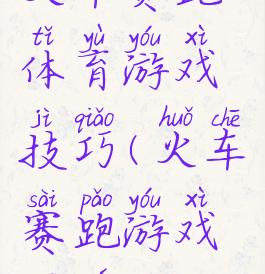 tǐ yù yóu xì
体育游戏
jì qiǎo huǒ chē
技巧(火车
sài pǎo yóu xì
赛跑游戏